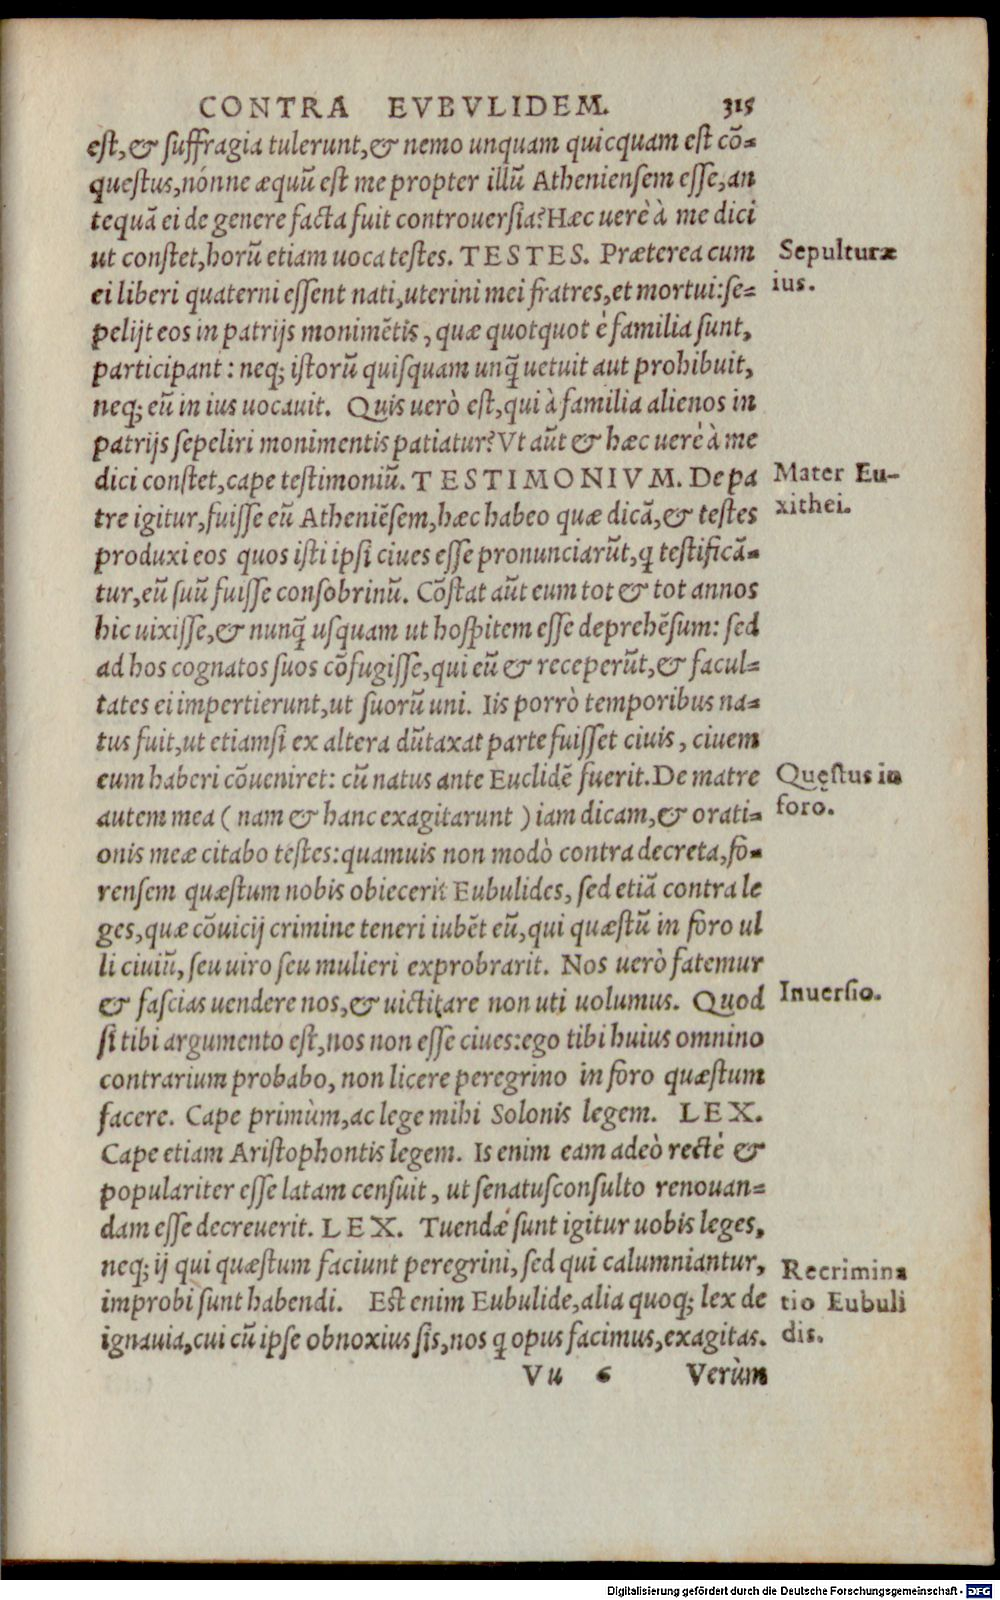 CONTRA EVBVLIDEM. 315
est, & suffragia tulerunt, & nemo unquam quicquam est cō-
questus, nónne æquū est me propter illū Atheniensem esse, an
tequā ei de genere facta fuit controuersia? Hæc uerè à me dici
ut constet, horū etiam uoca testes. TESTES. Præterea cum
ei liberi quaterni essent nati, uterini mei fratres, et mortui: se-
pelijt eos in patrijs monimētis, quæ quotquot è familia sunt,
participant: neq; istorū quisquam unq̄ uetuit aut prohibuit,
neq; eū in ius uocauit. Quis uerò est, qui à familia alienos in
patrijs sepeliri monimentis patiatur? Vt aūt & hæc uerè à me
dici constet, cape testimoniū. TESTIMONIVM. De pa
tre igitur, fuisse eū Atheniēsem, hæc habeo quæ dicā, & testes
produxi eos quos isti ipsi ciues esse pronunciarūt, q testificā-
tur, eū suū fuisse consobrinū. Cōstat aūt eum tot & tot annos
hic uixisse, & nunq̄ usquam ut hospitem esse deprehēsum: sed
ad hos cognatos suos cōfugisse, qui eū & receperūt, & facul-
tates ei impertierunt, ut suorū uni. Iis porrò temporibus na-
tus fuit, ut etiamsi ex altera dūtaxat parte fuisset ciuis, ciuem
eum haberi cōueniret: cū natus ante Euclidē fuerit. De matre
autem mea (nam & hanc exagitarunt) iam dicam, & orati-
onis meæ citabo testes: quamuis non modò contra decreta, fo-
rensem quæstum nobis obiecerit Eubulides, sed etiā contra le
ges, quæ cōuicij crimine teneri iubēt eū, qui quæstū in foro ul
li ciuiū, seu uiro seu mulieri exprobrarit. Nos uerò fatemur
& fascias uendere nos, & uictitare non uti uolumus. Quod
si tibi argumento est, nos non esse ciues: ego tibi huius omnino
contrarium probabo, non licere peregrino in foro quæstum
facere. Cape primùm, ac lege mihi Solonis legem. LEX.
Cape etiam Aristophontis legem. Is enim eam adeò rectè &
populariter esse latam censuit, ut senatusconsulto renouan-
dam esse decreuerit. LEX. Tuendæ sunt igitur uobis leges,
neq; ij qui quæstum faciunt peregrini, sed qui calumniantur,
improbi sunt habendi. Est enim Eubulide, alia quoq; lex de
ignauia, cui cū ipse obnoxius sis, nos q opus facimus, exagitas.
Vu 6 Verùm
Sepulturæ
ius.
Mater Eu-
xithei.
Quęstus in
foro.
Inuersio.
Recrimina
tio Eubuli
dis.
Digitalisierung gefördert durch die Deutsche Forschungsgemeinschaft - DFG